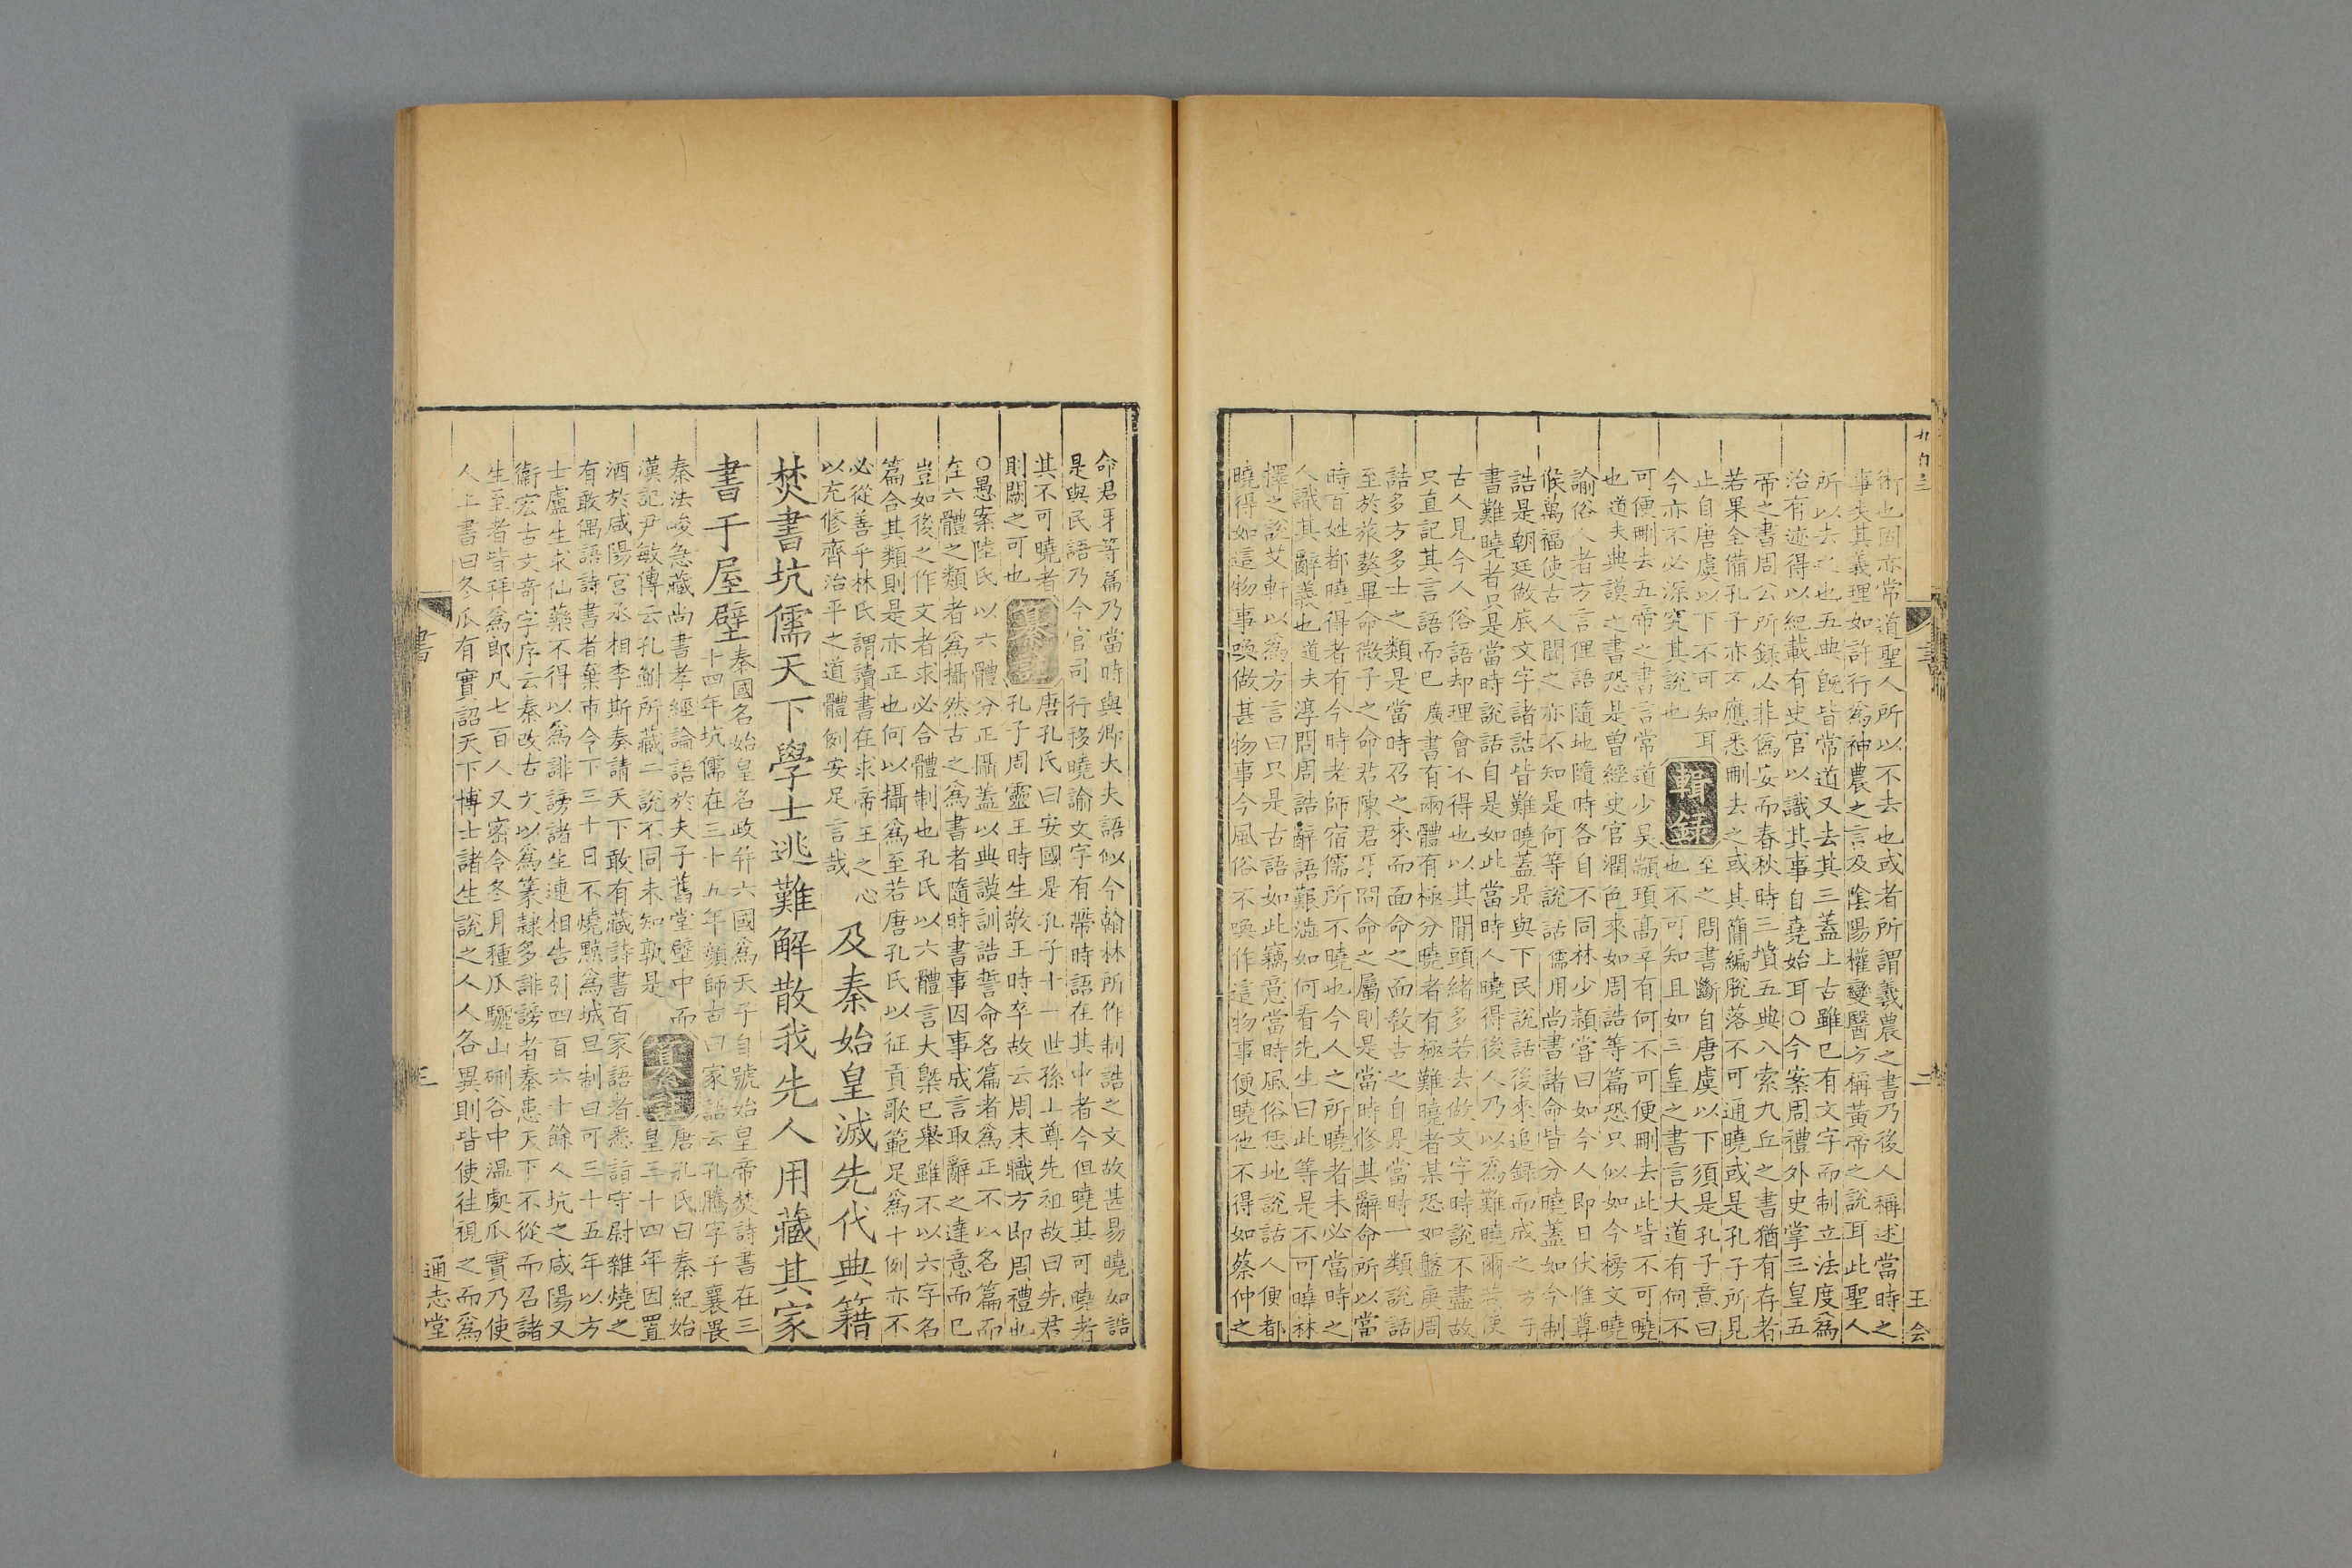 九百三
書
二
王会
術也固亦常道聖人所以不去也或者所謂羲農之書乃後人稱述當時之
事失其義理如許行為神農之言及陰陽權變醫方稱黃帝之說耳此聖人
所以去之也五典旣皆常道又去其三蓋上古雖已有文字而制立法度為
治有迹得以紀載有史官以識其事自堯始耳○今案周禮外史掌三皇五
帝之書周公所錄必非偽妄而春秋時三墳五典八索九丘之書猶有存者
若果全備孔子亦不應悉刪去之或其簡編脫落不可通曉或是孔子所見
止自唐虞以下不可知耳
今亦不必深究其說也
輯錄
至之問書斷自唐虞以下須是孔子意曰
也不可知且如三皇之書言大道有何不
可便刪去五帝之書言常道少昊顓頊高辛有何不可便刪去此皆不可曉
也道夫典謨之書恐是曾經史官潤色來如周誥等篇恐只似如今榜文曉
諭俗人者方言俚語隨地隨時各自不同林少穎嘗曰如今人即日伏惟尊
候萬福使古人聞之亦不知是何等說話儒用尚書諸命皆分曉蓋如今制
誥是朝廷做底文字諸誥皆難曉蓋是與下民說話後來追録而成之方子
書難曉者只是當時說話自是如此當時人曉得後人乃以為難曉爾若使
古人見今人俗語却理會不得也以其間頭緒多若去做文字時說不盡故
只直記其言語而已廣書有兩體有極分曉者有極難曉者某恐如盤庚周
誥多方多士之類是當時召之來而面命之而面教告之自是當時一類說話
至於旅獒畢命微子之命君陳君牙冏命之屬則是當時修其辭命所以當
時百姓都曉得者有今時老師宿儒所不曉也今人之所曉者未必當時之
人識其辭義也道夫淳問周誥辭語艱澁如何看先生曰此等是不可曉林
擇之說艾軒以為方言曰只是古語如此竊意當時風俗恁地說話人便都
曉得如這物事喚做甚物事今風俗不喚作這物事便曉他不得如蔡仲之
命君牙等篇乃當時與卿大夫語似今翰林所作制誥之文故甚易曉如誥
是與民語乃今官司行移曉諭文字有帶時語在其中者今但曉其可曉者
其不可曉者
則闕之可也
纂註
唐孔氏曰安國是孔子十一世孫上尊先祖故曰先君
孔子周靈王時生敬王時卒故云周末職方即周禮也
○愚案陸氏以六體分正攝蓋以典謨訓誥誓命名篇者為正不以名篇而
在六體之類者為攝然古之為書者隨時書事因事成言取辭之達意而已
豈如後之作文者求必合體制也孔氏以六體言大槩已舉雖不以六字名
篇合其類則是亦正也何以攝為至若唐孔氏以征貢歌範足為十例亦不
必從善乎林氏謂讀書在求帝王之心
以充修齊治平之道體例安足言哉
及秦始皇滅先代典籍
焚書坑儒天下學士逃難解散我先人用藏其家
書于屋壁
秦國名始皇名政幷六國為天子自號始皇帝焚詩書在三
十四年坑儒在三十五年顏師古曰家語云孔騰字子襄畏
秦法峻急藏尚書孝經論語於夫子舊堂壁中而
漢記尹敏傳云孔鮒所藏二說不同未知孰是
纂註
唐孔氏曰秦紀始
皇三十四年因置
酒於咸陽宮丞相李斯奏請天下敢有藏詩書百家語者悉詣守尉雜燒之
有敢偶語詩書者棄市令下三十日不燒黥為城旦制曰可三十五年以方
士盧生求仙藥不得以為誹謗諸生連相告引四百六十餘人坑之咸陽又
衛宏古文奇字序云秦改古文以為篆隸多誹謗者秦患天下不從而召諸
生至者皆拜為郎凡七百人又密令冬月種瓜驪山硎谷中温處瓜實乃使
人上書曰冬瓜有實詔天下博士諸生說之人人各異則皆使往視之而為
書
三
通志堂